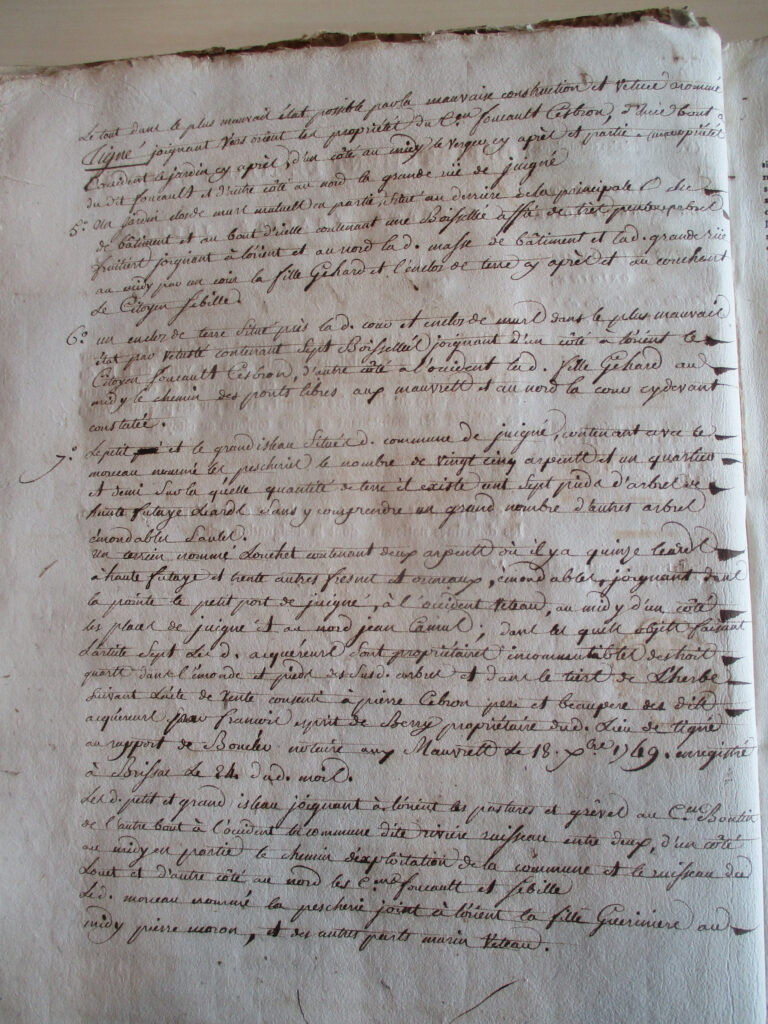 Le tout dans le plus mauvais état possible par la mauvaise construction et vetusté nommé
Tigné joignant vers orient les propriétés du C.en foucault Cesbron, d'un bout à
l'occident le jardin cy après d'un côté au midy le verger cy après et partie
du dit foucault et d'autre côté au nord la grande rüe de juigné
5.° Un jardin clos de murs mutuels en partie situé au derriere de la principale
de bâtiment et au bout d'icelle contenant une Boisselée affié de très peu
fruitiers joignant à l'orient et au nord lad. masse de bâtiment et lad. grande rüe
au midy par un coin la fille Gehard et l'enclos de terre cy après et au couchant
Le Citoyen sebille.
6.° un enclos de terre situé près lad. cour et enclos de murs dans le plus mauvais
état par vetusté contenant sept Boisselées joignant d'un côté à l'orient le
Citoyen foucault Cesbron, d'autre côté à l'occident lad. fille Gehard au
midy le chemin des ponts libres aux mauvrets et au nord la cour cydevant
constatée.
7.° Le petit et le grand isleau situés d. commune de juigné, contenant avec le
morceau nommé les pescheries le nombre de vingt cinq arpents et un quartier
et demi sur la quelle quantité de terre il existe cent sept pieds d'arbres de
haute futaye Leards sans y comprendre un grand nombre d'autres arbres
émondables saules.
Un terrein nommé Louchet contenant deux arpents où il y a quinze leards
à haute futaye et trente autres fresnes et ormeaux, émondables, joignant dans
la pointe le petit port de juigné, à l'occident Veteau, au midy d'un côté
les places de juigné et au nord jean Camus; dans les quels objets faisant
L'article sept les d. acquereurs sont propriétaires incommutables des trois
quarts dans l'émonde et pieds des susd. arbres et dans le tiers de L'herbe
suivant L'acte de vente consenti à pierre Cebron pere et beaupere des dits
acquereurs par francois esprit de Berry propriétaire dud. Lieu de Tigné
au rapport de Boucler notaire aux Mauvrets Le 18. Xbre 1749. enregistré
à Brissac Le 24. dud. mois.
Les d. petit et grand isleau joignant à l'orient les pastures et grêves au C.en Boutin
de l'autre bout à l'occident la commune dite rivière ruisseau entre deux, d'un côté
au midy en partie le chemin d'exploitation de la commune et le ruisseau du
Louet et d'autre côté au nord les C.ens foucault et sebille
Led. morceau nommé la pescherie joint à l'orient la fille Guerinière au
midy pierre moron, et des autres parts marin Veteau.